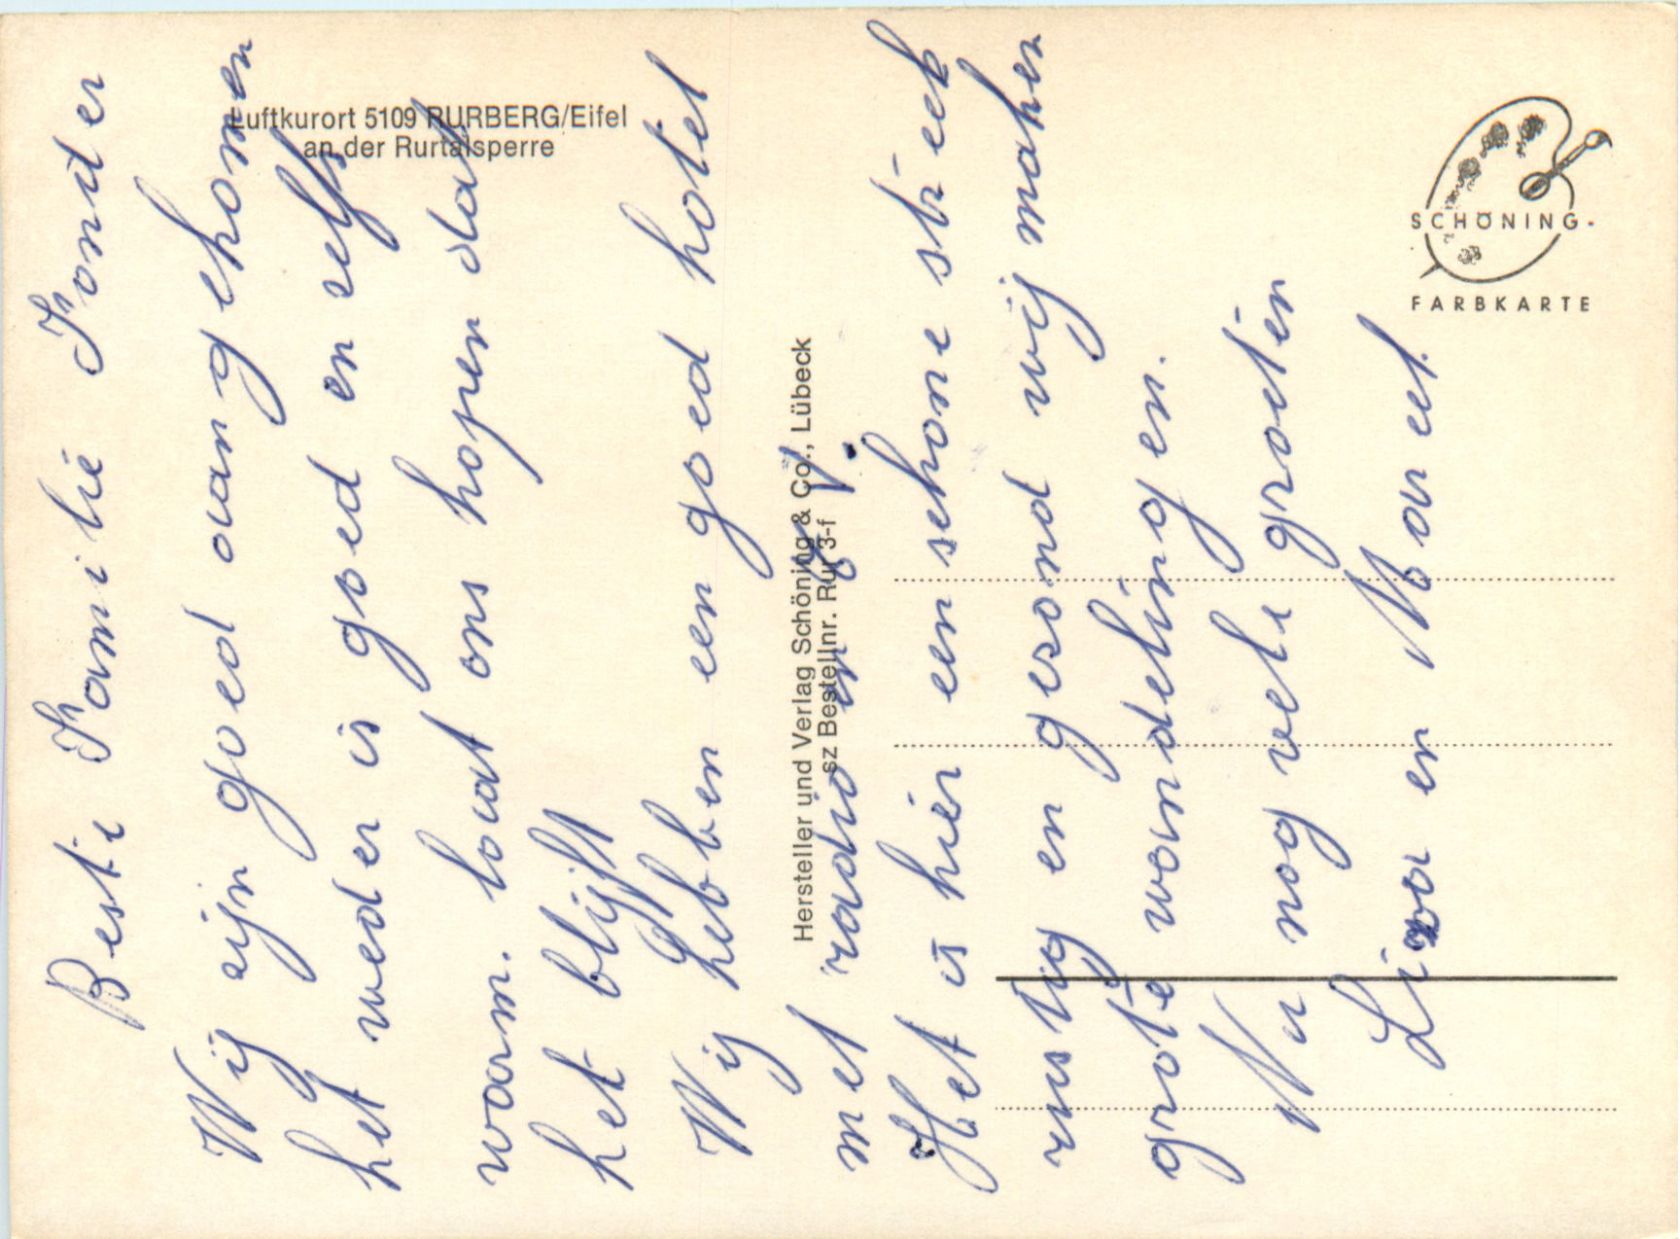 Luftkurort 5109 RURBERG/Eifel
an der Rurtalsperre
Beste Familie Fonder
Wij zijn goed aangekomen
het weder is goed en zelfs
warm. laat ons hopen dat
het blijft
Wij hebben een goed hotel
met radio en T V.
Het is hier een schone streek
rustig en gezond wij maken
grote wandelingen.
Nu nog vele groeten
Liza en Maret.
Hersteller und Verlag Schöning & Co., Lübeck
sz Bestellnr. Rur 3-f
SCHÖNING-
FARBKARTE